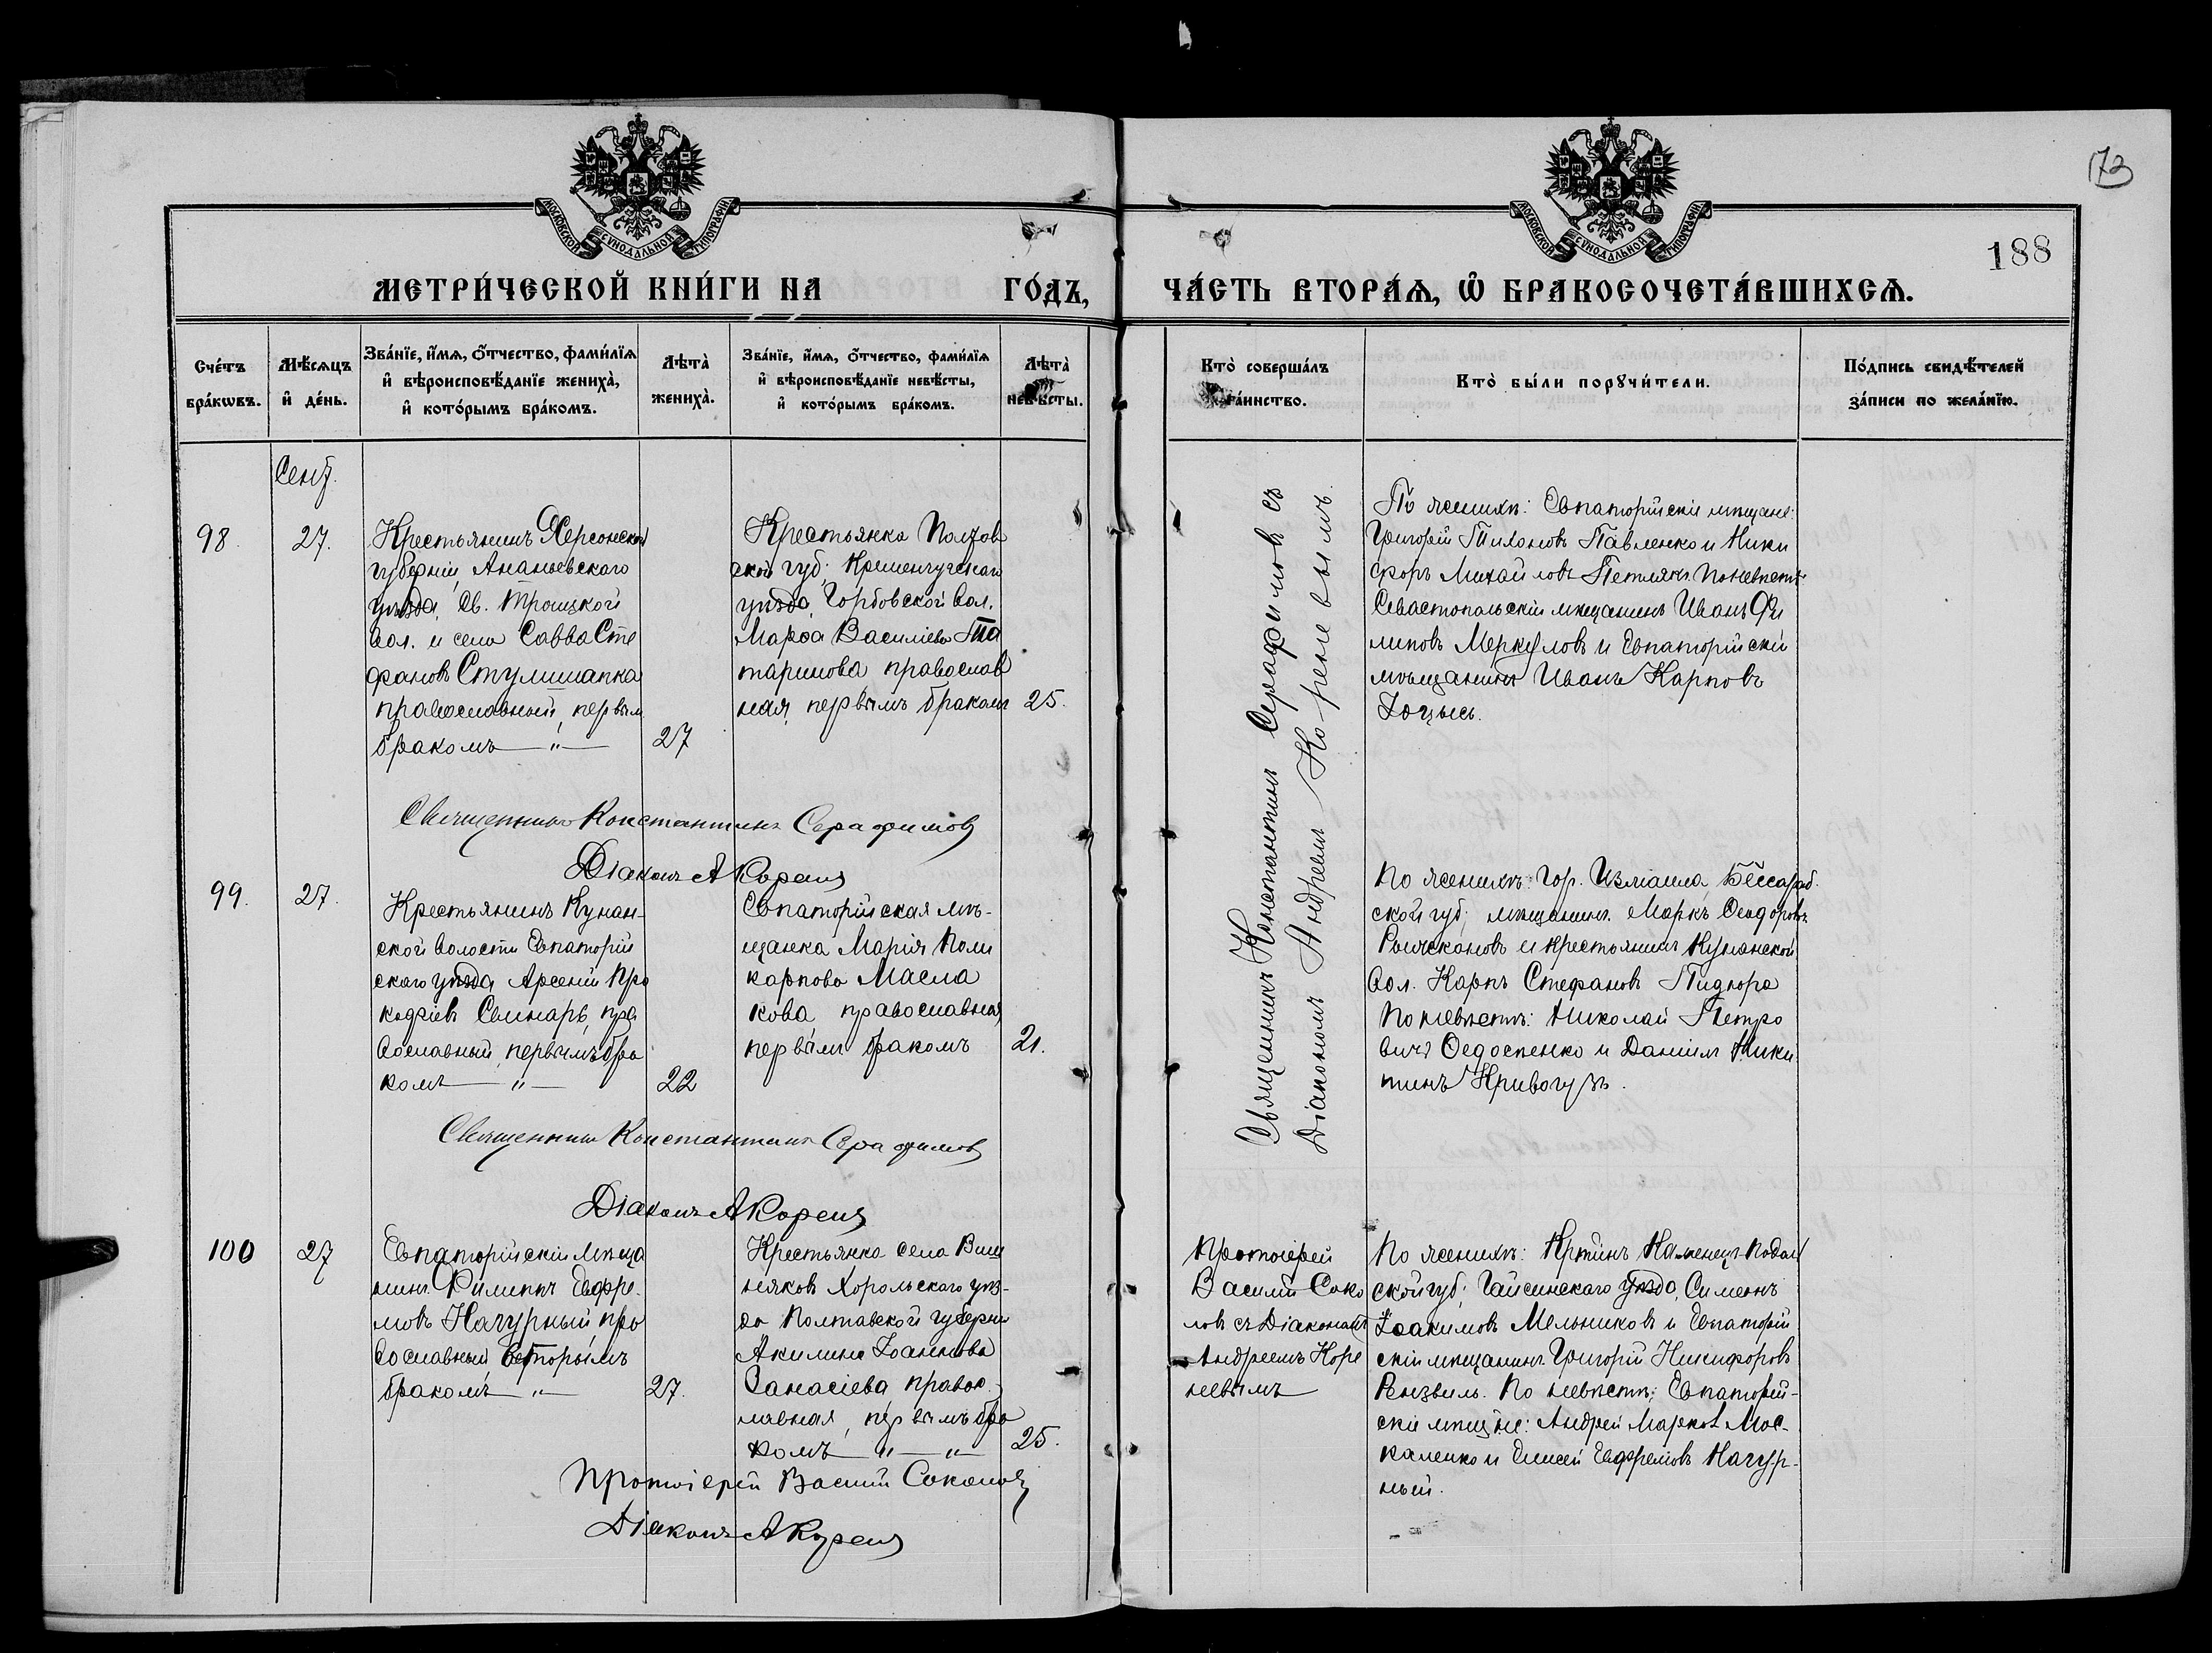 173
188
МОСКОВСКОЙ СѴНОДАЛЬНОЙ ТИПОГРАФІИ
МОСКОВСКОЙ СѴНОДАЛЬНОЙ ТИПОГРАФІИ
МЕТРИ́ЧЕСКОЙ КНИ́ГИ НА ГО́ДЪ,
ЧА́СТЬ ВТОРА́Ѧ, Ѽ БРАКОСОЧЕТА́ВШИХСѦ.
Сче́тъ бра́кѡвъ.
Мѣ́сяцъ и҆ де́нь.
Зва́нїе, и҆́мѧ, ѻ҆́тчество, фами́лїѧ
и҆ вѣроисповѣ́данїе жениха̀,
и҆ кото́рымъ бра́комъ.
Лѣта̀ жениха̀.
Зва́нїе, и҆́мѧ, ѻ҆́тчество, фами́лїѧ
и҆ вѣроисповѣ́данїе невѣ́сты,
и҆ кото́рымъ бра́комъ.
Лѣта̀ невѣ́сты.
Кто̀ соверша́лъ
та́инство.
Кто̀ бы́ли порꙋчи́тели.
По́дпись свидѣ́телей
за́писи по жела́нїю.
Сент.
98. 27.
Крестьянинъ Херсонской
губерніи, Ананьевскаго
уѣзда, Св. Троицкой
вол. и села Савва Сте
фановъ Стулишапка
православный, первым
бракомъ — " —
27
Крестьянка Полтав
ской губ; Кременчугскаго
уѣзда, Горбовской вол.
Марѳа Василіева Та
таринова православ
ная, первымъ бракомъ
25.
Священникъ Константинъ Серафимовъ съ
Діакономъ Андреемъ Кореневымъ.
По женихѣ: Евпаторійскіе мѣщане:
Григорій Тихоновъ Павленко и Ники
форъ Михайловъ Петлякъ. По невѣстѣ:
Севастопольскій мѣщанинъ Иванъ Фи
липовъ Меркуловъ и Евпаторійскій
мѣщанинъ Иванъ Карповъ
Священникъ Константинъ Серафимовъ
Діаконъ А Кореня
99. 27.
Крестьянинъ Кунан-
ской волости Евпаторій
скаго уѣзда Арсеній Про
кофіевъ Свинарь, пра
вославный, первымъ бра
комъ — " —
22
Евпаторійская мѣ-
щанка Марія Поли
карпова Масла
кова православная,
первымъ бракомъ
21.
По женихѣ: Гор. Измаила Бессараб.
ской губ; мѣщанинъ Маркъ Ѳеодоровъ
и крестьянинъ Кунанской
вол. Карпъ Стефановъ Пидгора
По невѣстѣ: Николай Петро
вичъ Ѳедосенко и Даніилъ Ники
тинъ Кривогузъ.
Священникъ Константинъ Серафимовъ
Діаконъ А Кореня
100 27
Евпаторійскій мѣща
нинъ Филиппъ Евфре-
мовъ Нагурный, пра
вославный вторымъ
бракомъ — " —
27.
Крестьянка села Виш
няковъ Хорольскаго уѣз-
да Полтавской губерніи
Акилина Іоаннова
Ѳанасіева, правос-
лавная, первымъ бра
комъ " — " —
25.
Протоіерей
Василій Соко
ловъ съ Діакономъ
Андреемъ Коре
невымъ
По женихѣ: Кр-нинъ Каменецъ-Подоль
ской губ; Гайсинскаго уѣзда, Симеонъ
Іоакимовъ Мельниковъ и Евпаторій
скій мѣщанинъ Григорій Никифоровъ
По невѣстѣ: Евпаторій-
скіе мѣщ-не: Андрей Марковъ Мос-
каленко и Елисей Евфремовъ Нагур-
ный.
Протоіерей Василій Соколовъ
Діаконъ А Кореня